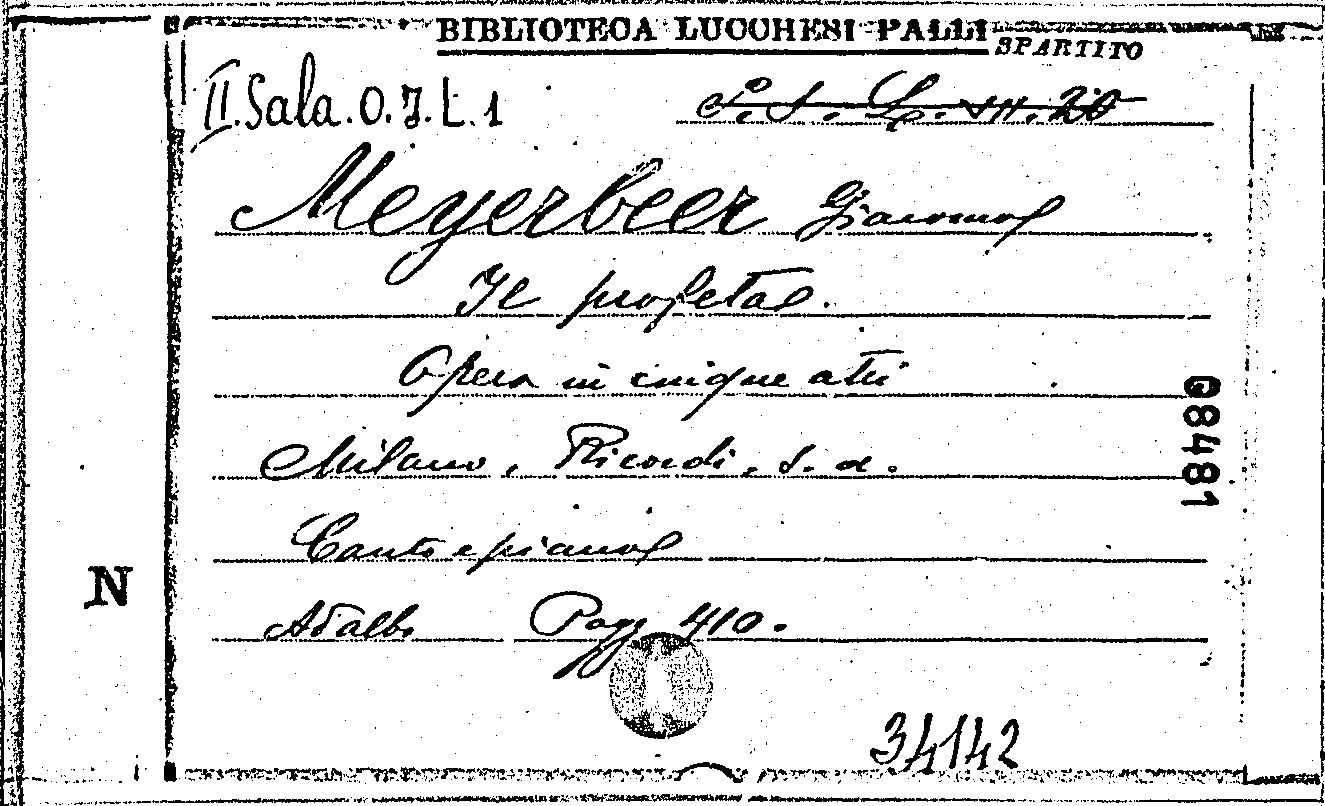 BIBLIOTECA LUCCHESI-PALLI
SPARTITO
II. Sala. O. 7. L. 1
Meyerbeer Giacomo
Il profeta.
Opera in cinque atti
Milano, Ricordi, s. d.
Canto e piano
Adalbo Pagg 410.
34142
N
08481